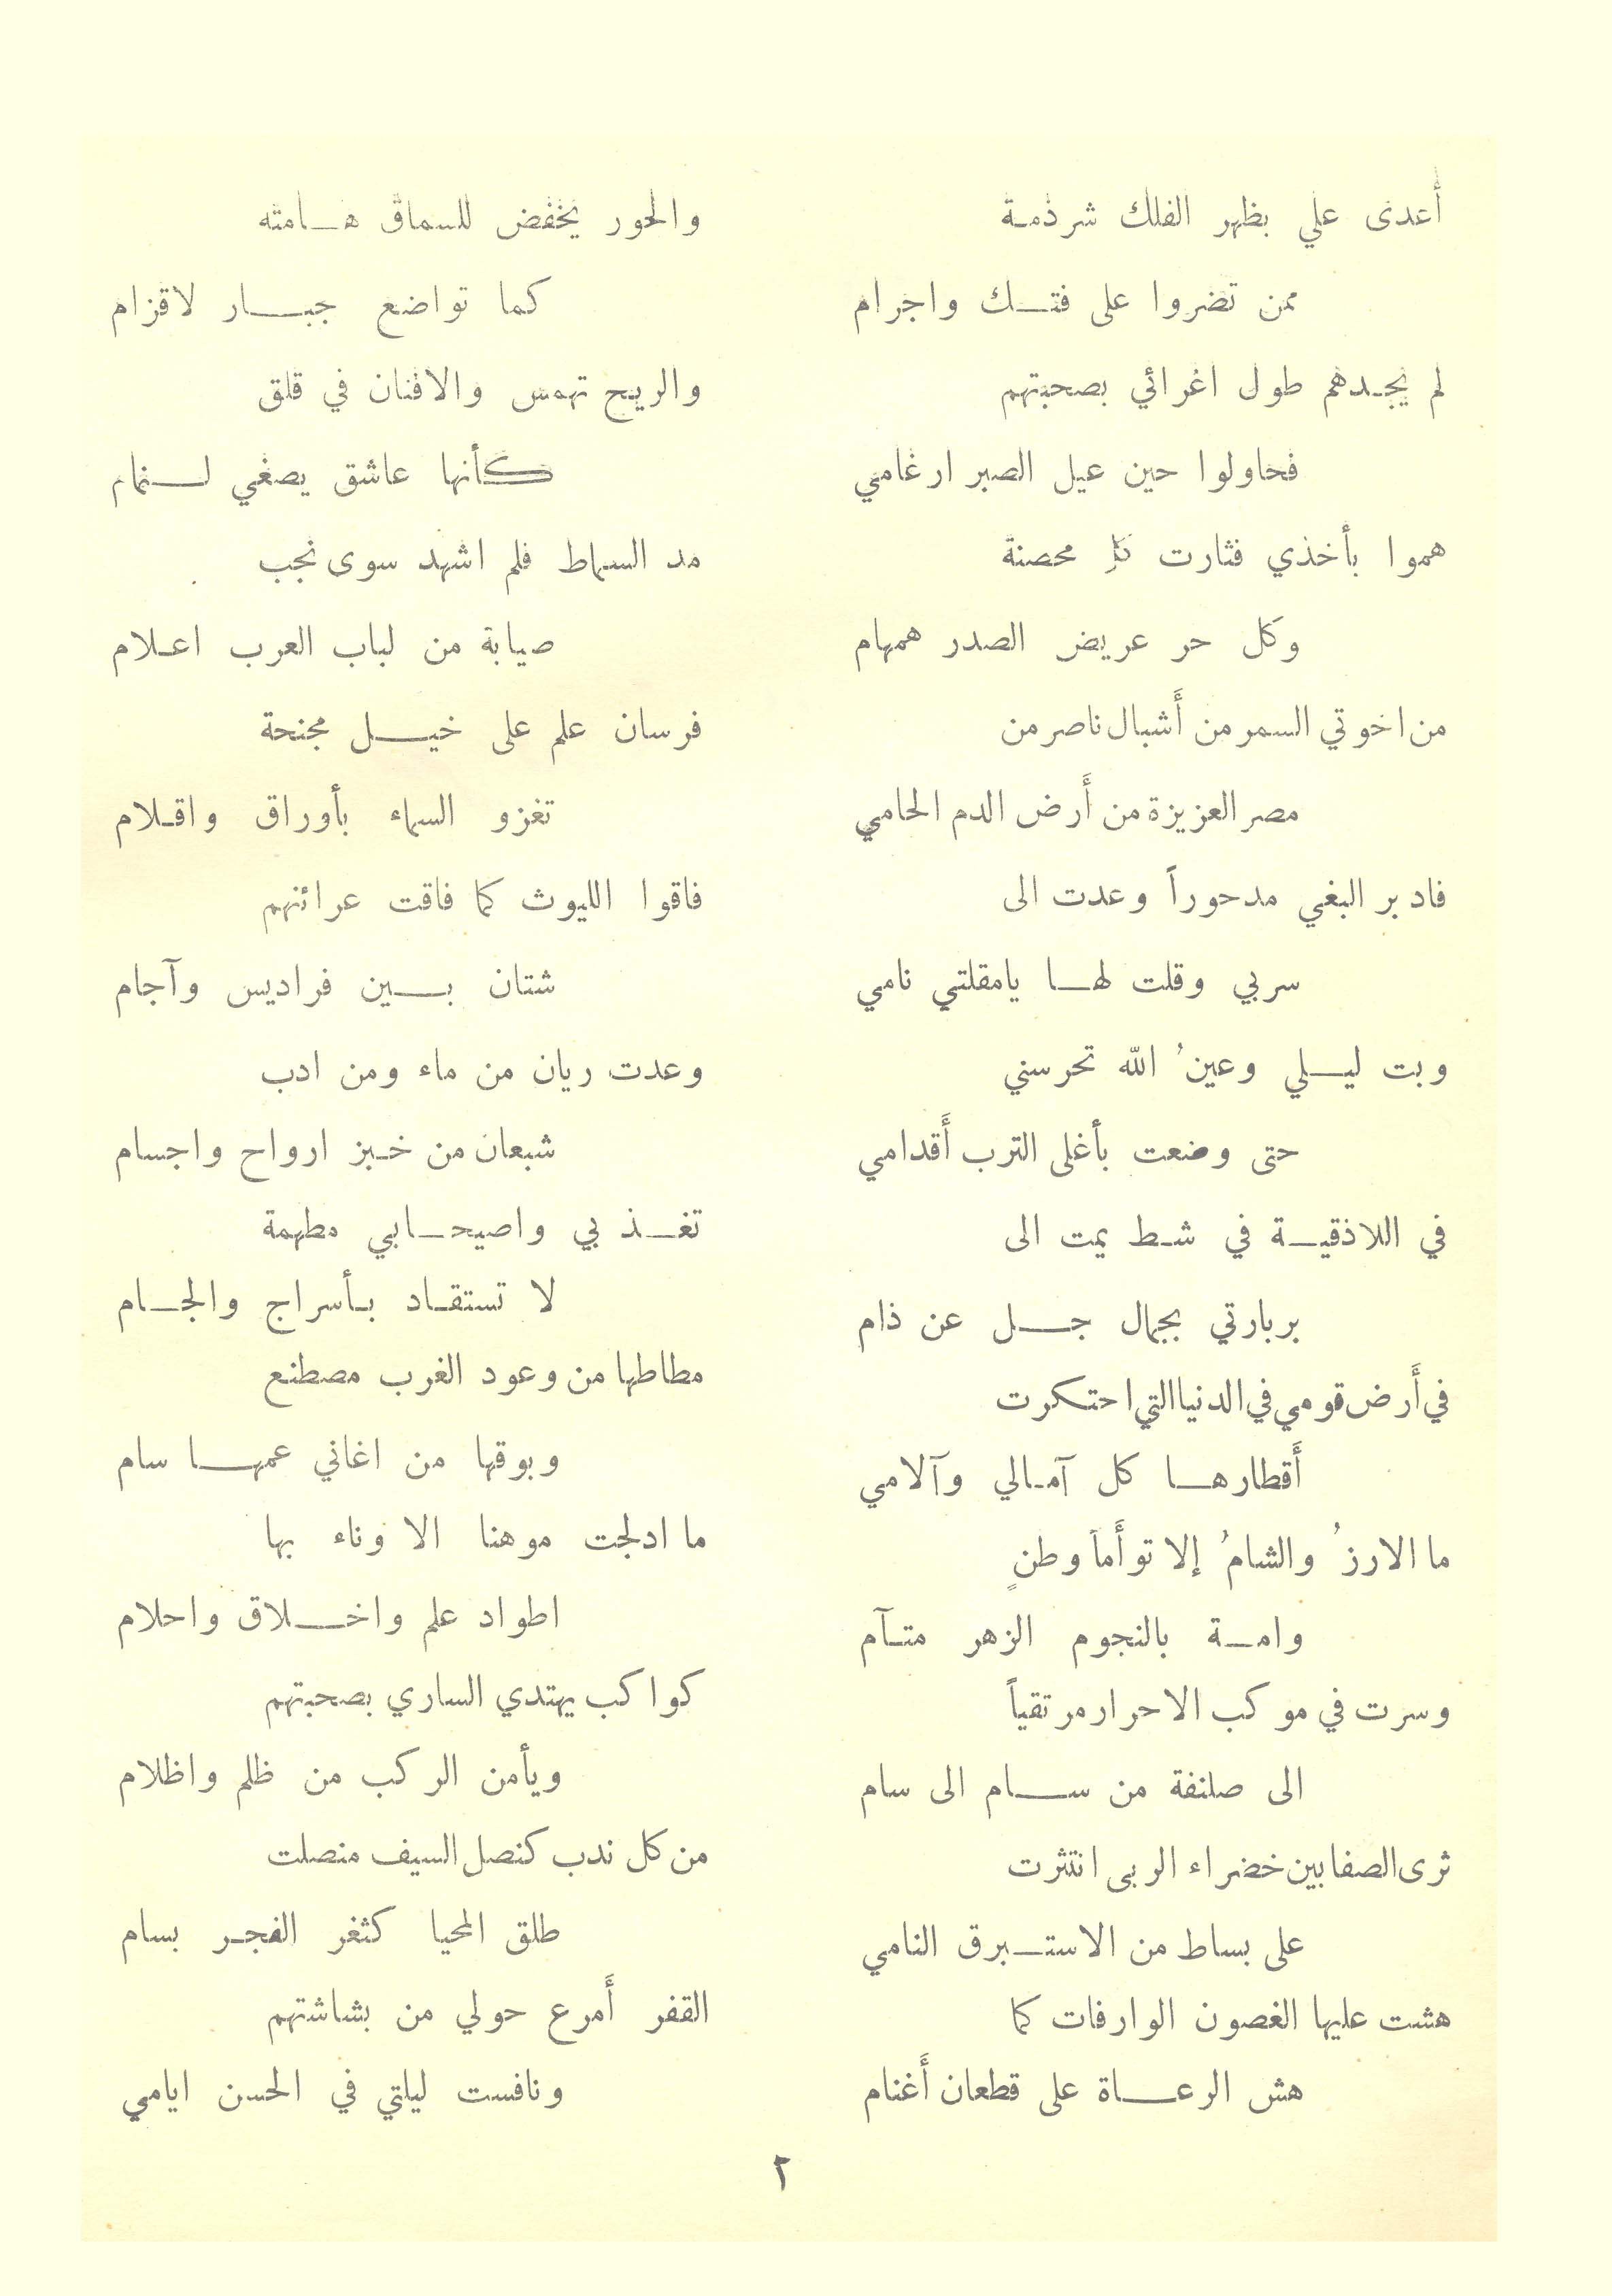 أعدى علي بظهر الفلك شرذمة
ممن تضروا على فتك واجرام
لم يجدهم طول اغرائي بصحبتهم
فحاولوا حين عيل الصبر ارغامي
هموا بأخذي فثارت كل محصنة
وكل حر عريض الصدر همهام
من اخوتي السمر من أشبال ناصر من
مصر العزيزة من أرض الدم الحامي
فادبر البغي مدحوراً وعدت الى
سربي وقلت لها يامقلتي نامي
وبت ليلي وعينُ الله تحرسني
حتى وضعت بأغلى الترب أقدامي
في اللاذقية في شط يمت الى
بربارتي بجمال جل عن ذام
في أرض قومي في الدنيا التي احتكرت
أقطارها كل آمالي وآلامي
ما الارزُ والشامُ إلا توأما وطنٍ
وامة بالنجوم الزهر متآم
وسرت في موكب الاحرار مرتقياً
الى صلنفة من سام الى سام
ثرى الصفا بين خضراء الربى انتثرت
على بساط من الاستبرق النامي
هشت عليها الغصون الوارفات كما
هش الرعاة على قطعان أغنام
والحور يخفض للسماق هامته
كما تواضع جبار لاقزام
والريح تهمس والافنان في قلق
كأنها عاشق يصغي لنمام
مد السماط فلم اشهد سوى نجب
صيابة من لباب العرب اعلام
فرسان علم على خيل مجنحة
تغزو السماء بأوراق واقلام
فاقوا الليوث كما فاقت عرائنهم
شتان بين فراديس وآجام
وعدت ريان من ماء ومن ادب
شبعان من خبز ارواح واجسام
تغذ بي واصيحابي مطهمة
لا تستقاد بأسراج والجام
مطاطها من وعود الغرب مصطنع
وبوقها من اغاني عمها سام
ما ادلجت موهنا الا وناء بها
اطواد علم واخلاق واحلام
كواكب يهتدي الساري بصحبتهم
ويأمن الركب من ظلم واظلام
من كل ندب كنصل السيف منصلت
طلق المحيا كثغر الفجر بسام
القفر أمرع حولي من بشاشتهم
ونافست ليلتي في الحسن ايامي
٢